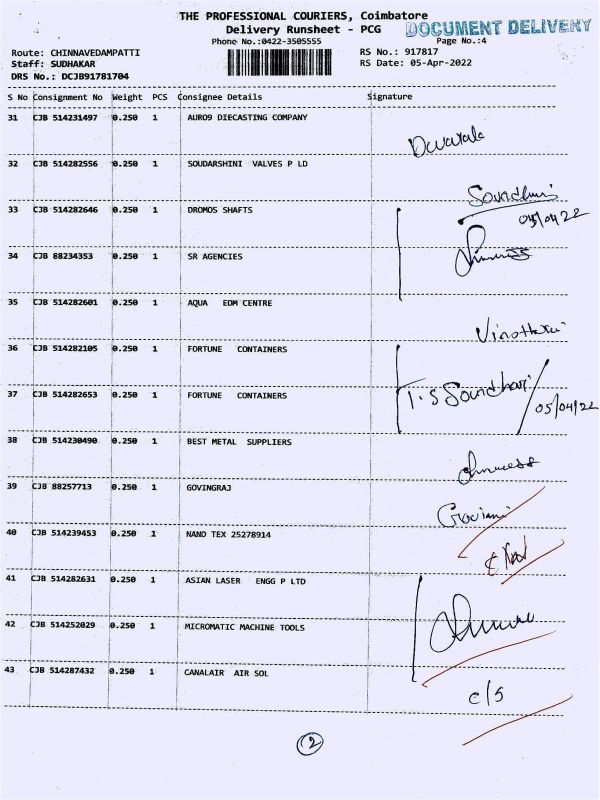 THE PROFESSIONAL COURIERS, Coimbatore
Delivery Runsheet - PCG
DOCUMENT DELIVERY
Phone No.:0422-3505555
Page No.:4
Route: CHINNAVEDAMPATTI
RS No.: 917817
Staff: SUDHAKAR
RS Date: 05-Apr-2022
DRS No.: DCJB91781704
S No Consignment No Weight PCS Consignee Details Signature
31 CJB 514231497 0.250 1 AURO9 DIECASTING COMPANY
32 CJB 514282556 0.250 1 SOUDARSHINI VALVES P LD
33 CJB 514282646 0.250 1 DROMOS SHAFTS
05/04/22
34 CJB 88234353 0.250 1 SR AGENCIES
35 CJB 514282601 0.250 1 AQUA EDM CENTRE
36 CJB 514282105 0.250 1 FORTUNE CONTAINERS
37 CJB 514282653 0.250 1 FORTUNE CONTAINERS
T.S 05/04/22
38 CJB 514230490 0.250 1 BEST METAL SUPPLIERS
39 CJB 88257713 0.250 1 GOVINGRAJ
40 CJB 514239453 0.250 1 NANO TEX 25278914
41 CJB 514282631 0.250 1 ASIAN LASER ENGG P LTD
42 CJB 514252029 0.250 1 MICROMATIC MACHINE TOOLS
43 CJB 514287432 0.250 1 CANALAIR AIR SOL
c/s
2